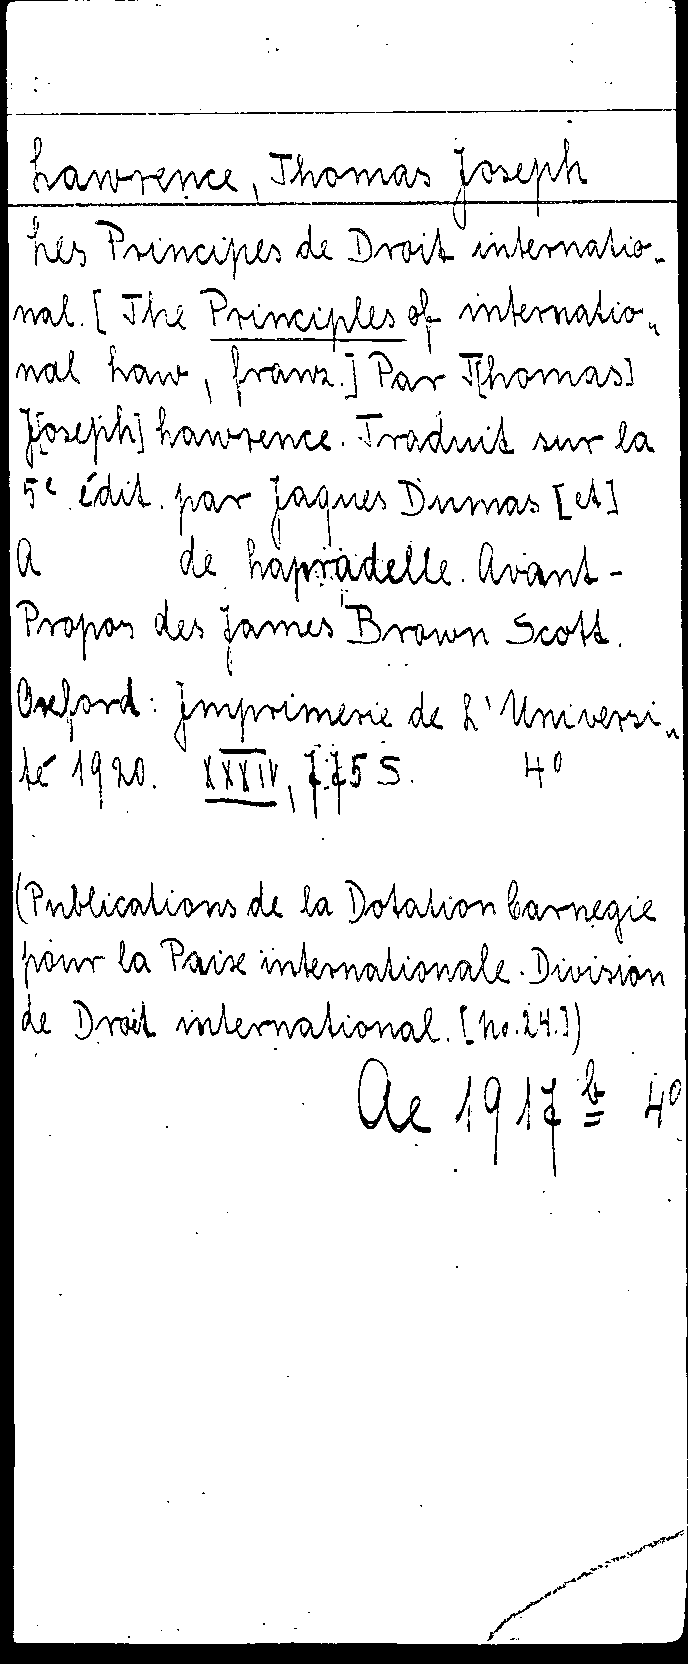 Lawrence, Thomas Joseph
Les Principes de Droit internatio-
nal. [The Principles of internatio-
nal Law, franz.] Par T[homas]
J[oseph] Lawrence. Traduit sur la
5e édit. par Jaques Dumas [et]
A de Lapradelle. Avant-
Propos des James Brown Scott.
Oxford: Imprimerie de L'Universi-
té 1920. XXXIV, 775 S. 4°
(Publications de la Dotation Carnegie
pour la Paix internationale. Division
de Droit international. [No. 24.])
Ae 1917 b 4°